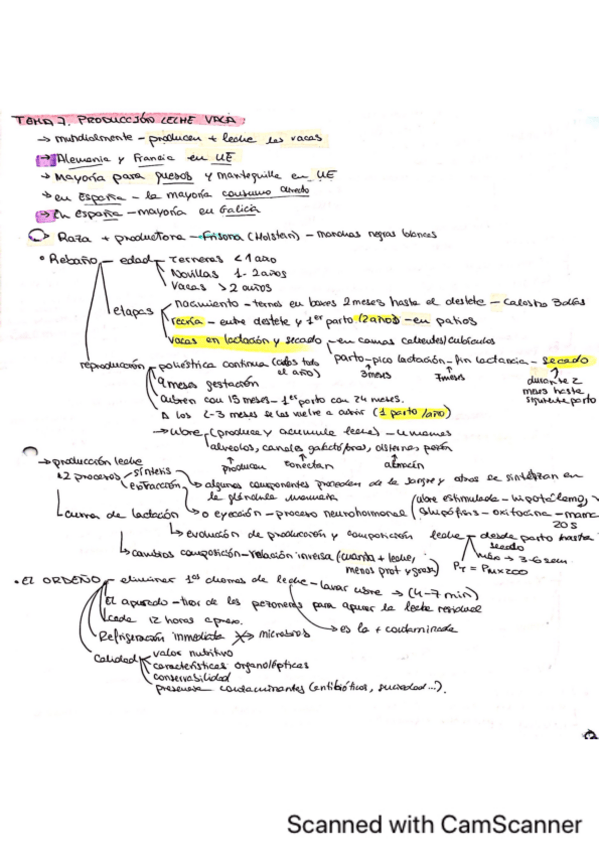 TEMA 7. PRODUCCIÓN LECHE VACA
→ mundialmente - producen + leche las vacas
→ Alemania y Francia en UE
→ Mayoría para quesos y mantequilla en UE
→ en España - la mayoría consumo directo
→ En España - mayoría en Galicia
Raza + productora - Frisona (Holstein) - manchas negras blancas
• Rebaño - edad - Terneros < 1 año
Novillas 1-2 años
Vacas > 2 años
etapas - nacimiento - terneros en boxes 2 meses hasta el destete - calostro 3 días
recría - entre destete y 1er parto (2 años) - en patios
vacas en lactación y secado - en camas calientes/cubículos
parto - pico lactación - fin lactancia - secado
3 meses 7 meses durante 2 meses hasta siguiente parto
reproducción - poliéstrica continua (celos todo el año)
9 meses gestación
cubren con 15 meses - 1er parto con 24 meses.
A los 2-3 meses se las vuelve a cubrir (1 parto/año)
→ Ubre (produce y acumula leche) - 4 mamas
alveolos, canales galactóforos, cisternas
producen conectan almacén
→ producción leche
2 procesos síntesis
extracción → algunos componentes proceden de la sangre y otros se sintetizan en
la glándula mamaria
→ o eyección - proceso neurohormonal (ubre estimulada - hipotálamo,
hipófisis - oxitocina - mama
20 s
curva de lactación
→ evolución de producción y composición leche - desde parto hasta
secado
máx → 3-6 sem
PT = PM x 200
→ cambios composición - relación inversa (cuanta + leche,
menos prot y grasa)
• EL ORDEÑO - eliminar 1os chorros de leche - lavar ubre → (4-7 min)
El apurado - tirar de los pezones para apurar la leche residual
cada 12 horas aprox.
→ es la + contaminada
Refrigeración inmediata microbios
Calidad valor nutritivo
características organolépticas
conservabilidad
presencia contaminantes (antibióticos, suciedad...).
Scanned with CamScanner